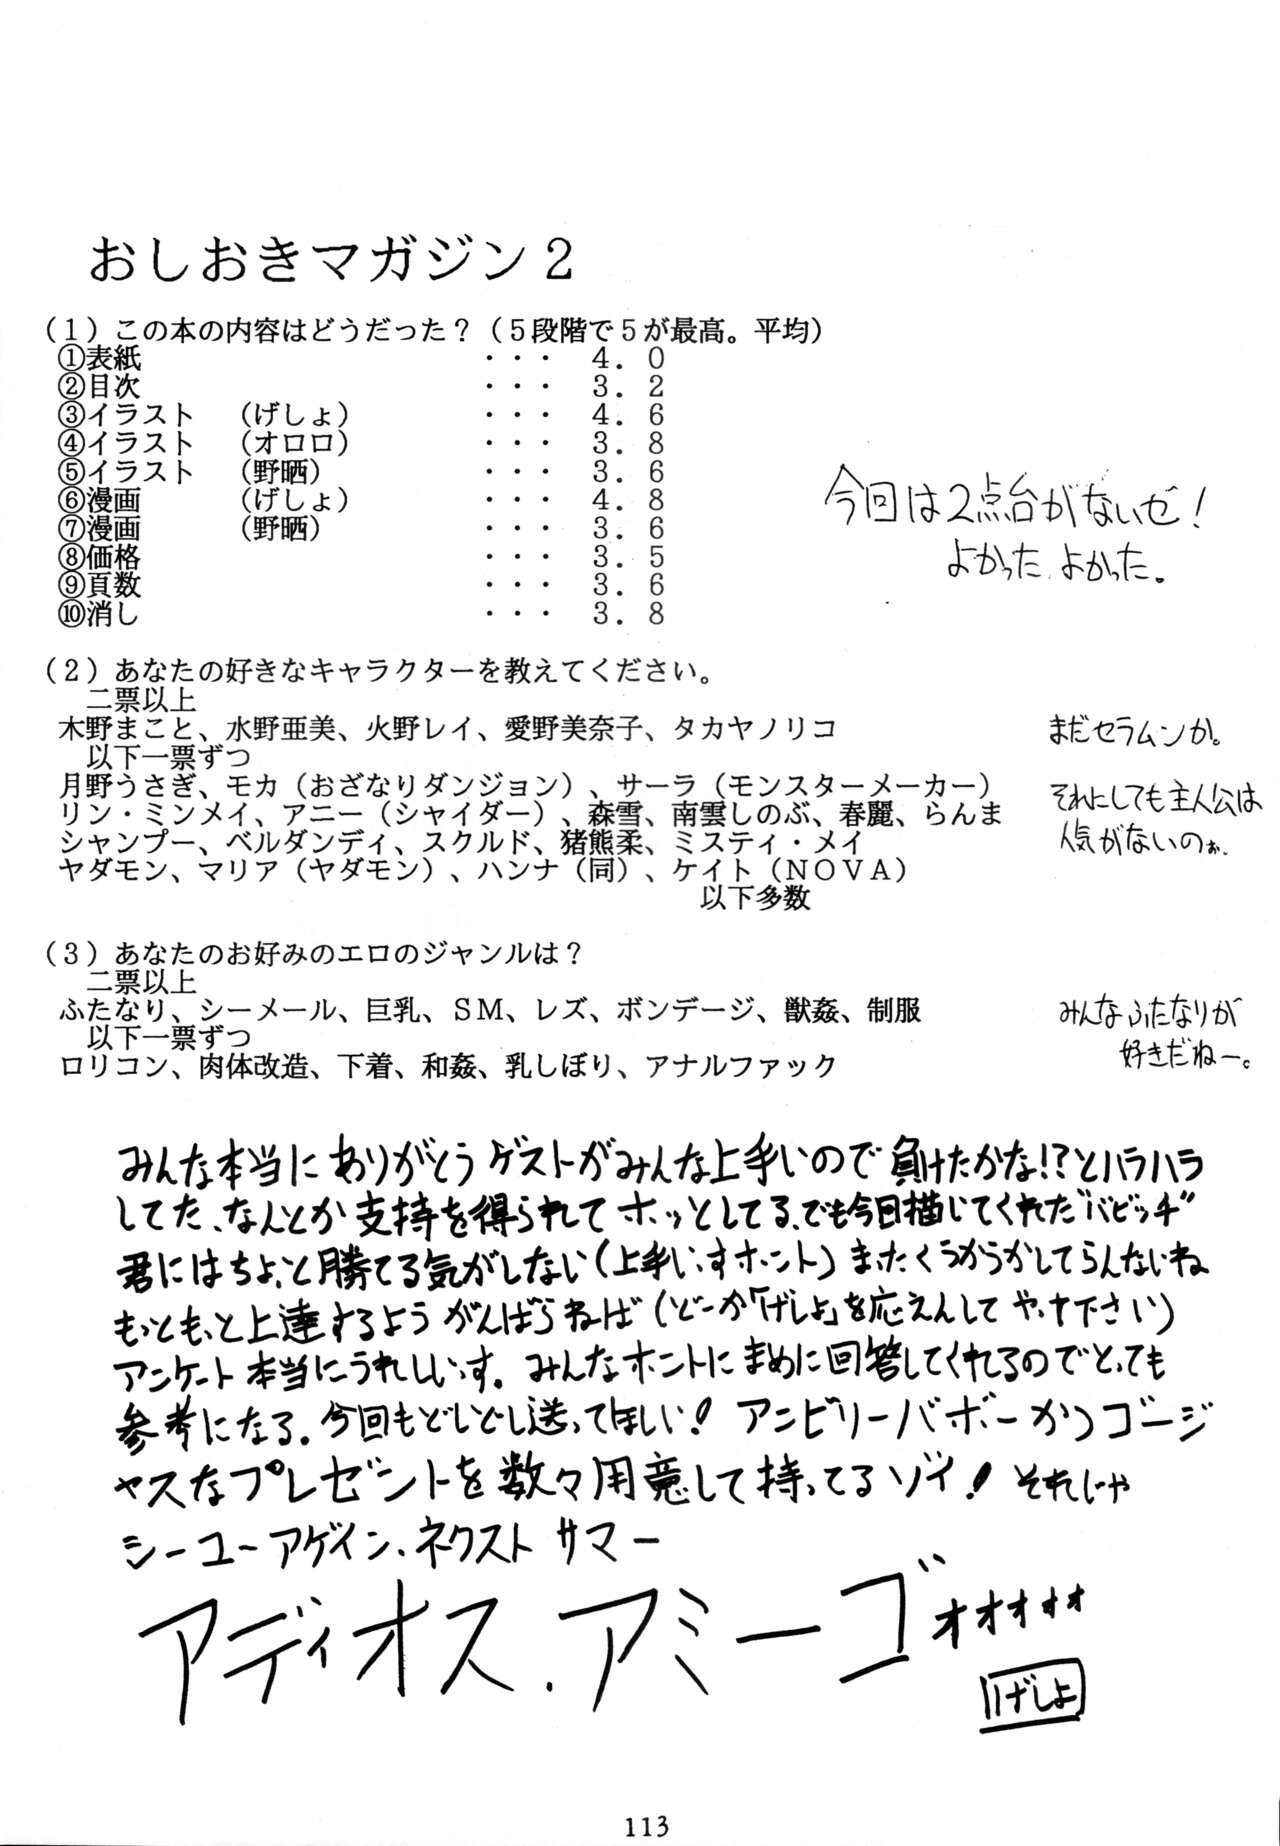 おしおきマガジン２
（１）この本の内容はどうだった？（５段階で５が最高。平均）
①表紙　・・・　４．０
②目次　・・・　３．２
③イラスト　（げしょ）　・・・　４．６
④イラスト　（オロロ）　・・・　３．８
⑤イラスト　（野晒）　・・・　３．６
⑥漫画　（げしょ）　・・・　４．８
⑦漫画　（野晒）　・・・　３．６
⑧価格　・・・　３．５
⑨頁数　・・・　３．６
⑩消し　・・・　３．８
今回は2点台がないぜ！
よかった、よかった。
（２）あなたの好きなキャラクターを教えてください。
二票以上
木野まこと、水野亜美、火野レイ、愛野美奈子、タカヤノリコ
以下一票ずつ
月野うさぎ、モカ（おざなりダンジョン）、サーラ（モンスターメーカー）
リン・ミンメイ、アニー（シャイダー）、森雪、南雲しのぶ、春麗、らんま
シャンプー、ベルダンディ、スクルド、猪熊柔、ミスティ・メイ
ヤダモン、マリア（ヤダモン）、ハンナ（同）、ケイト（ＮＯＶＡ）
以下多数
まだセラムンか。
それにしても主人公は
人気がないのぉ、
（３）あなたのお好みのエロのジャンルは？
二票以上
ふたなり、シーメール、巨乳、ＳＭ、レズ、ボンデージ、獣姦、制服
以下一票ずつ
ロリコン、肉体改造、下着、和姦、乳しぼり、アナルファック
みんなふたなりが
好きだねー。
みんな本当にありがとうゲストがみんな上手いので負けたかな!?とハラハラ
してた、なんとか支持を得られてホッとしてる、でも今回描いてくれた“バビッチ”
君にはちょっと勝てる気がしない（上手いっすホント）まったくうかうかしてらんないね
もっともっと上達するようがんばらねば（どーか「げしょ」を応えんしてやって下さい）
アンケート本当にうれしいっす。みんなホントにまめに回答してくれるのでとっても
参考になる。今回もどしどし送ってほしい！アンビリーバボーかつゴージ
ャスなプレゼントを数々用意して待ってるゾイ！それじゃ
シーユーアゲイン、ネクストサマー
アディオス．アミーゴォオオォォ
げしょ
113